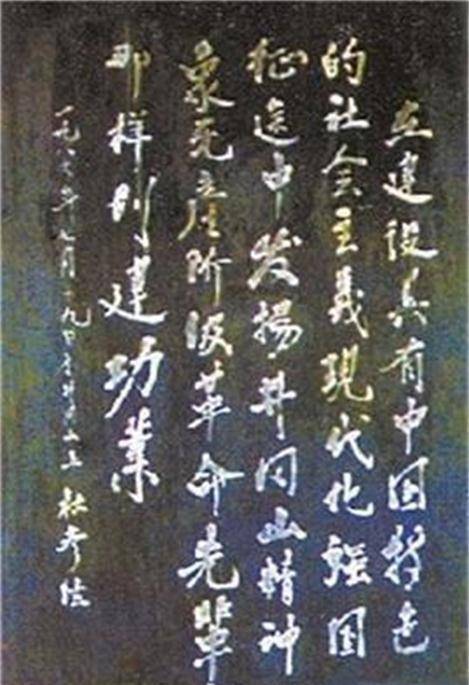 在建设具有中国特色
的社会主义现代化强国
征途中发揚井冈山精神
象无产阶级革命先輩
那样创建功業
一九八七年七月十九日于井冈山上 杜修德